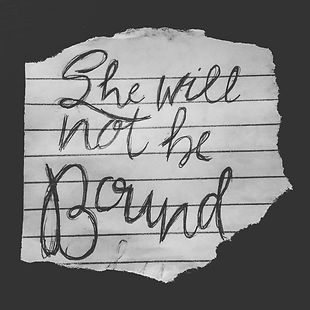 She will
not be
Bound